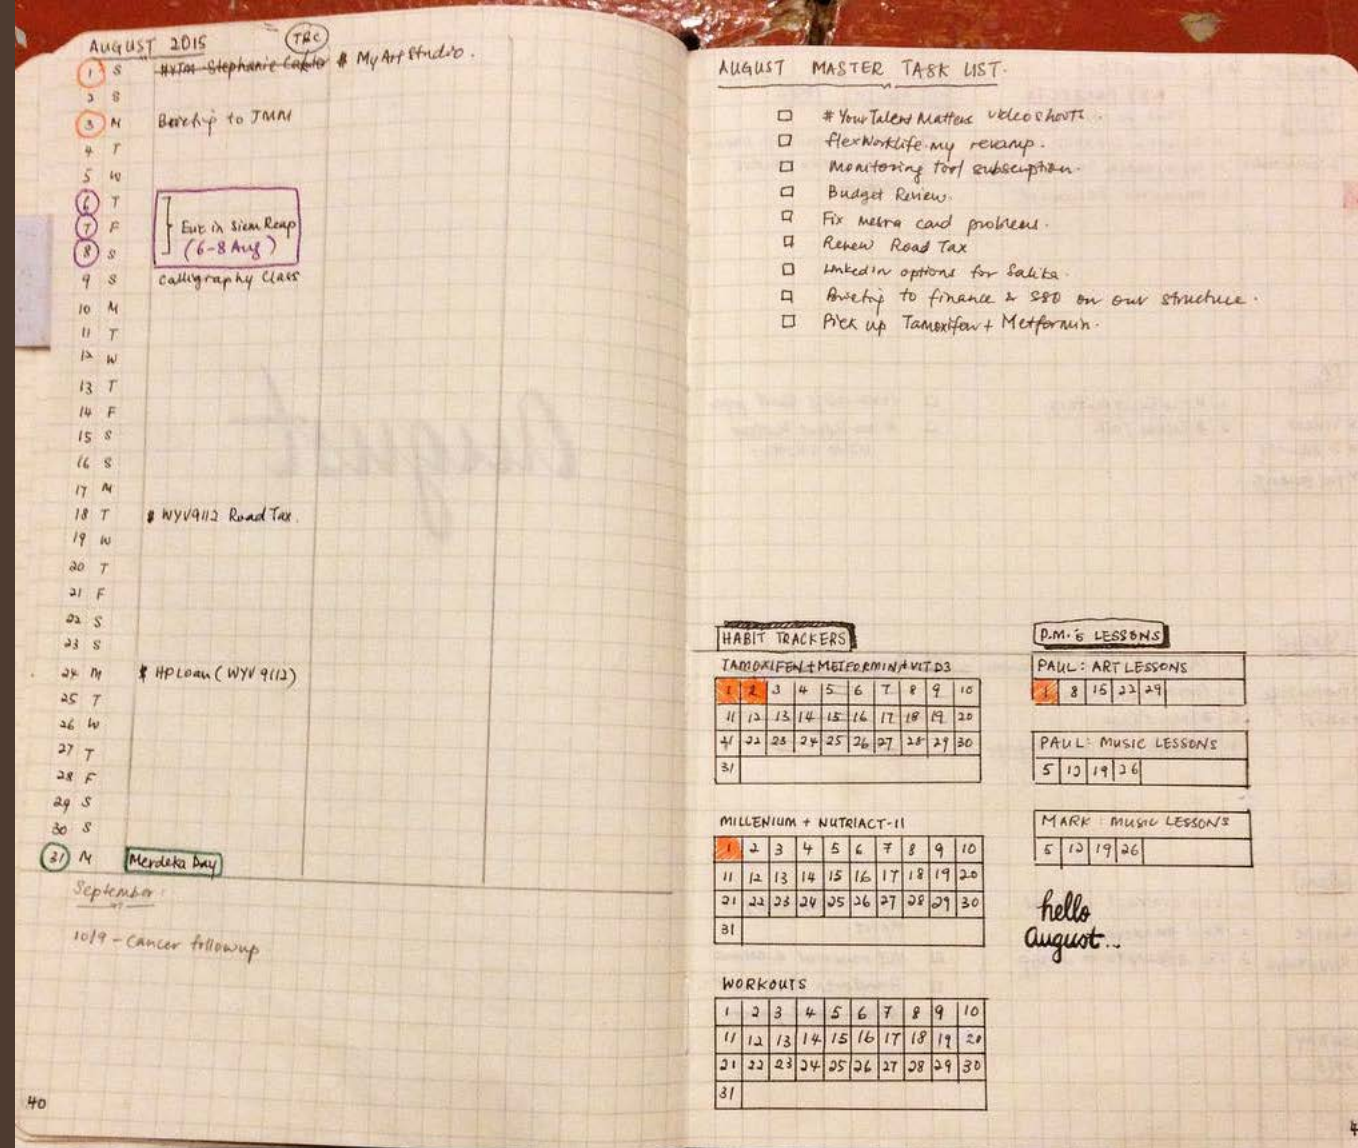 AUGUST 2015
TBC
1 S #YTM Stephanie $ MyArtStudio.
2 S
3 M Briefing to JMM
4 T
5 W
6 T
7 F EUC in Siem Reap
8 S (6-8 Aug)
9 S Calligraphy Class
10 M
11 T
12 W
13 T
14 F
15 S
16 S
17 M
18 T $ WYV9112 Road Tax.
19 W
20 T
21 F
22 S
23 S
24 M $ HP Loan (WYV 9112)
25 T
26 W
27 T
28 F
29 S
30 S
31 M Merdeka Day
September:
10/9 - Cancer followup
40
AUGUST MASTER TASK LIST.
# YourTalent Matters videoshoots.
flexWorklife.my revamp.
Monitoring tool subscription.
Budget Review.
Fix mesra card problems.
Renew Road Tax
LinkedIn options for Salika.
Briefing to finance & SSO on our structure.
Pick up Tamoxifen + Metformin.
HABIT TRACKERS
TAMOXIFEN + METFORMIN + VIT D3
1 2 3 4 5 6 7 8 9 10
11 12 13 14 15 16 17 18 19 20
21 22 23 24 25 26 27 28 29 30
31
MILLENIUM + NUTRIACT-11
1 2 3 4 5 6 7 8 9 10
11 12 13 14 15 16 17 18 19 20
21 22 23 24 25 26 27 28 29 30
31
WORKOUTS
1 2 3 4 5 6 7 8 9 10
11 12 13 14 15 16 17 18 19 20
21 22 23 24 25 26 27 28 29 30
31
P.M.'s LESSONS
PAUL: ART LESSONS
1 8 15 22 29
PAUL: MUSIC LESSONS
5 12 19 26
MARK: MUSIC LESSONS
5 12 19 26
hello
August...
4